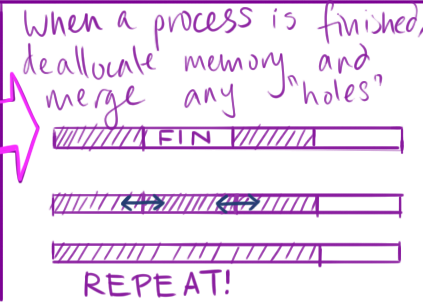 When a process is finished,
deallocate memory and
merge any "holes"
FIN
REPEAT!